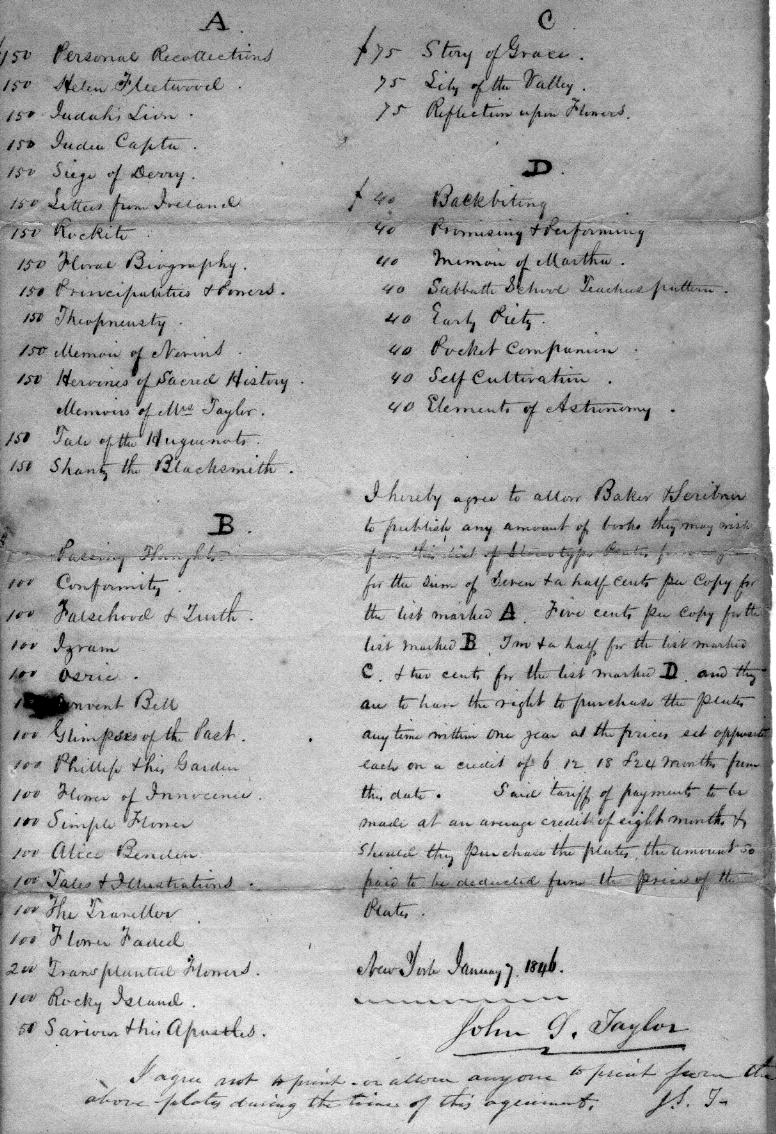 A
$150 Personal Recollections
150 Helen Fleetwood.
150 Judah's Lion.
150 Judea Capta.
150 Siege of Derry.
150 Letters from Ireland
150 Rockite.
150 Floral Biography.
150 Principalities & Powers.
150 Theopneusty.
150 Memoir of Nevins.
150 Heroines of Sacred History.
Memoirs of Mrs Taylor.
150 Tale of the Huguenots.
150 Shanty the Blacksmith.
B.
Passing Thoughts
100 Conformity.
100 Falsehood & Truth.
100 Izram
100 Osric.
Convent Bell
100 Glimpses of the Past.
100 Phillip & his Garden
100 Flower of Innocence.
100 Simple Flower
100 Alice Benden
100 Tales & Illustrations.
100 The Traveller
100 Flower Faded
200 Transplanted Flowers.
100 Rocky Island.
50 Saviour & his Apostles.
C
$75 Story of Grace.
75 Lily of the Valley.
75 Reflection upon Flowers.
D
$40 Backbiting
40 Promising & Performing
40 Memoir of Martha.
40 Sabbath School Teachers pattern.
40 Early Piety.
40 Pocket Companion
40 Self Cultivation.
40 Elements of Astronomy.
I hereby agree to allow Baker & Scribner
to publish any amount of books they may wish
from this list of Stereotype Plates
for the sum of Seven & a half cents per copy for
the list marked A. Five cents per copy for the
list marked B. Two & a half for the list marked
C. & two cents for the list marked D. and they
are to have the right to purchase the plates
any time within one year at the prices set opposite
each on a credit of 6 12 18 & 24 months from
this date. Said tariff of payments to be
made at an average credit of eight months &
should they purchase the plates, the amount so
paid to be deducted from the price of the
Plates.
New York January 7. 1846.
John S. Taylor
I agree not to print or allow anyone to print from the
above plates during the time of this agreement. J.S. T-